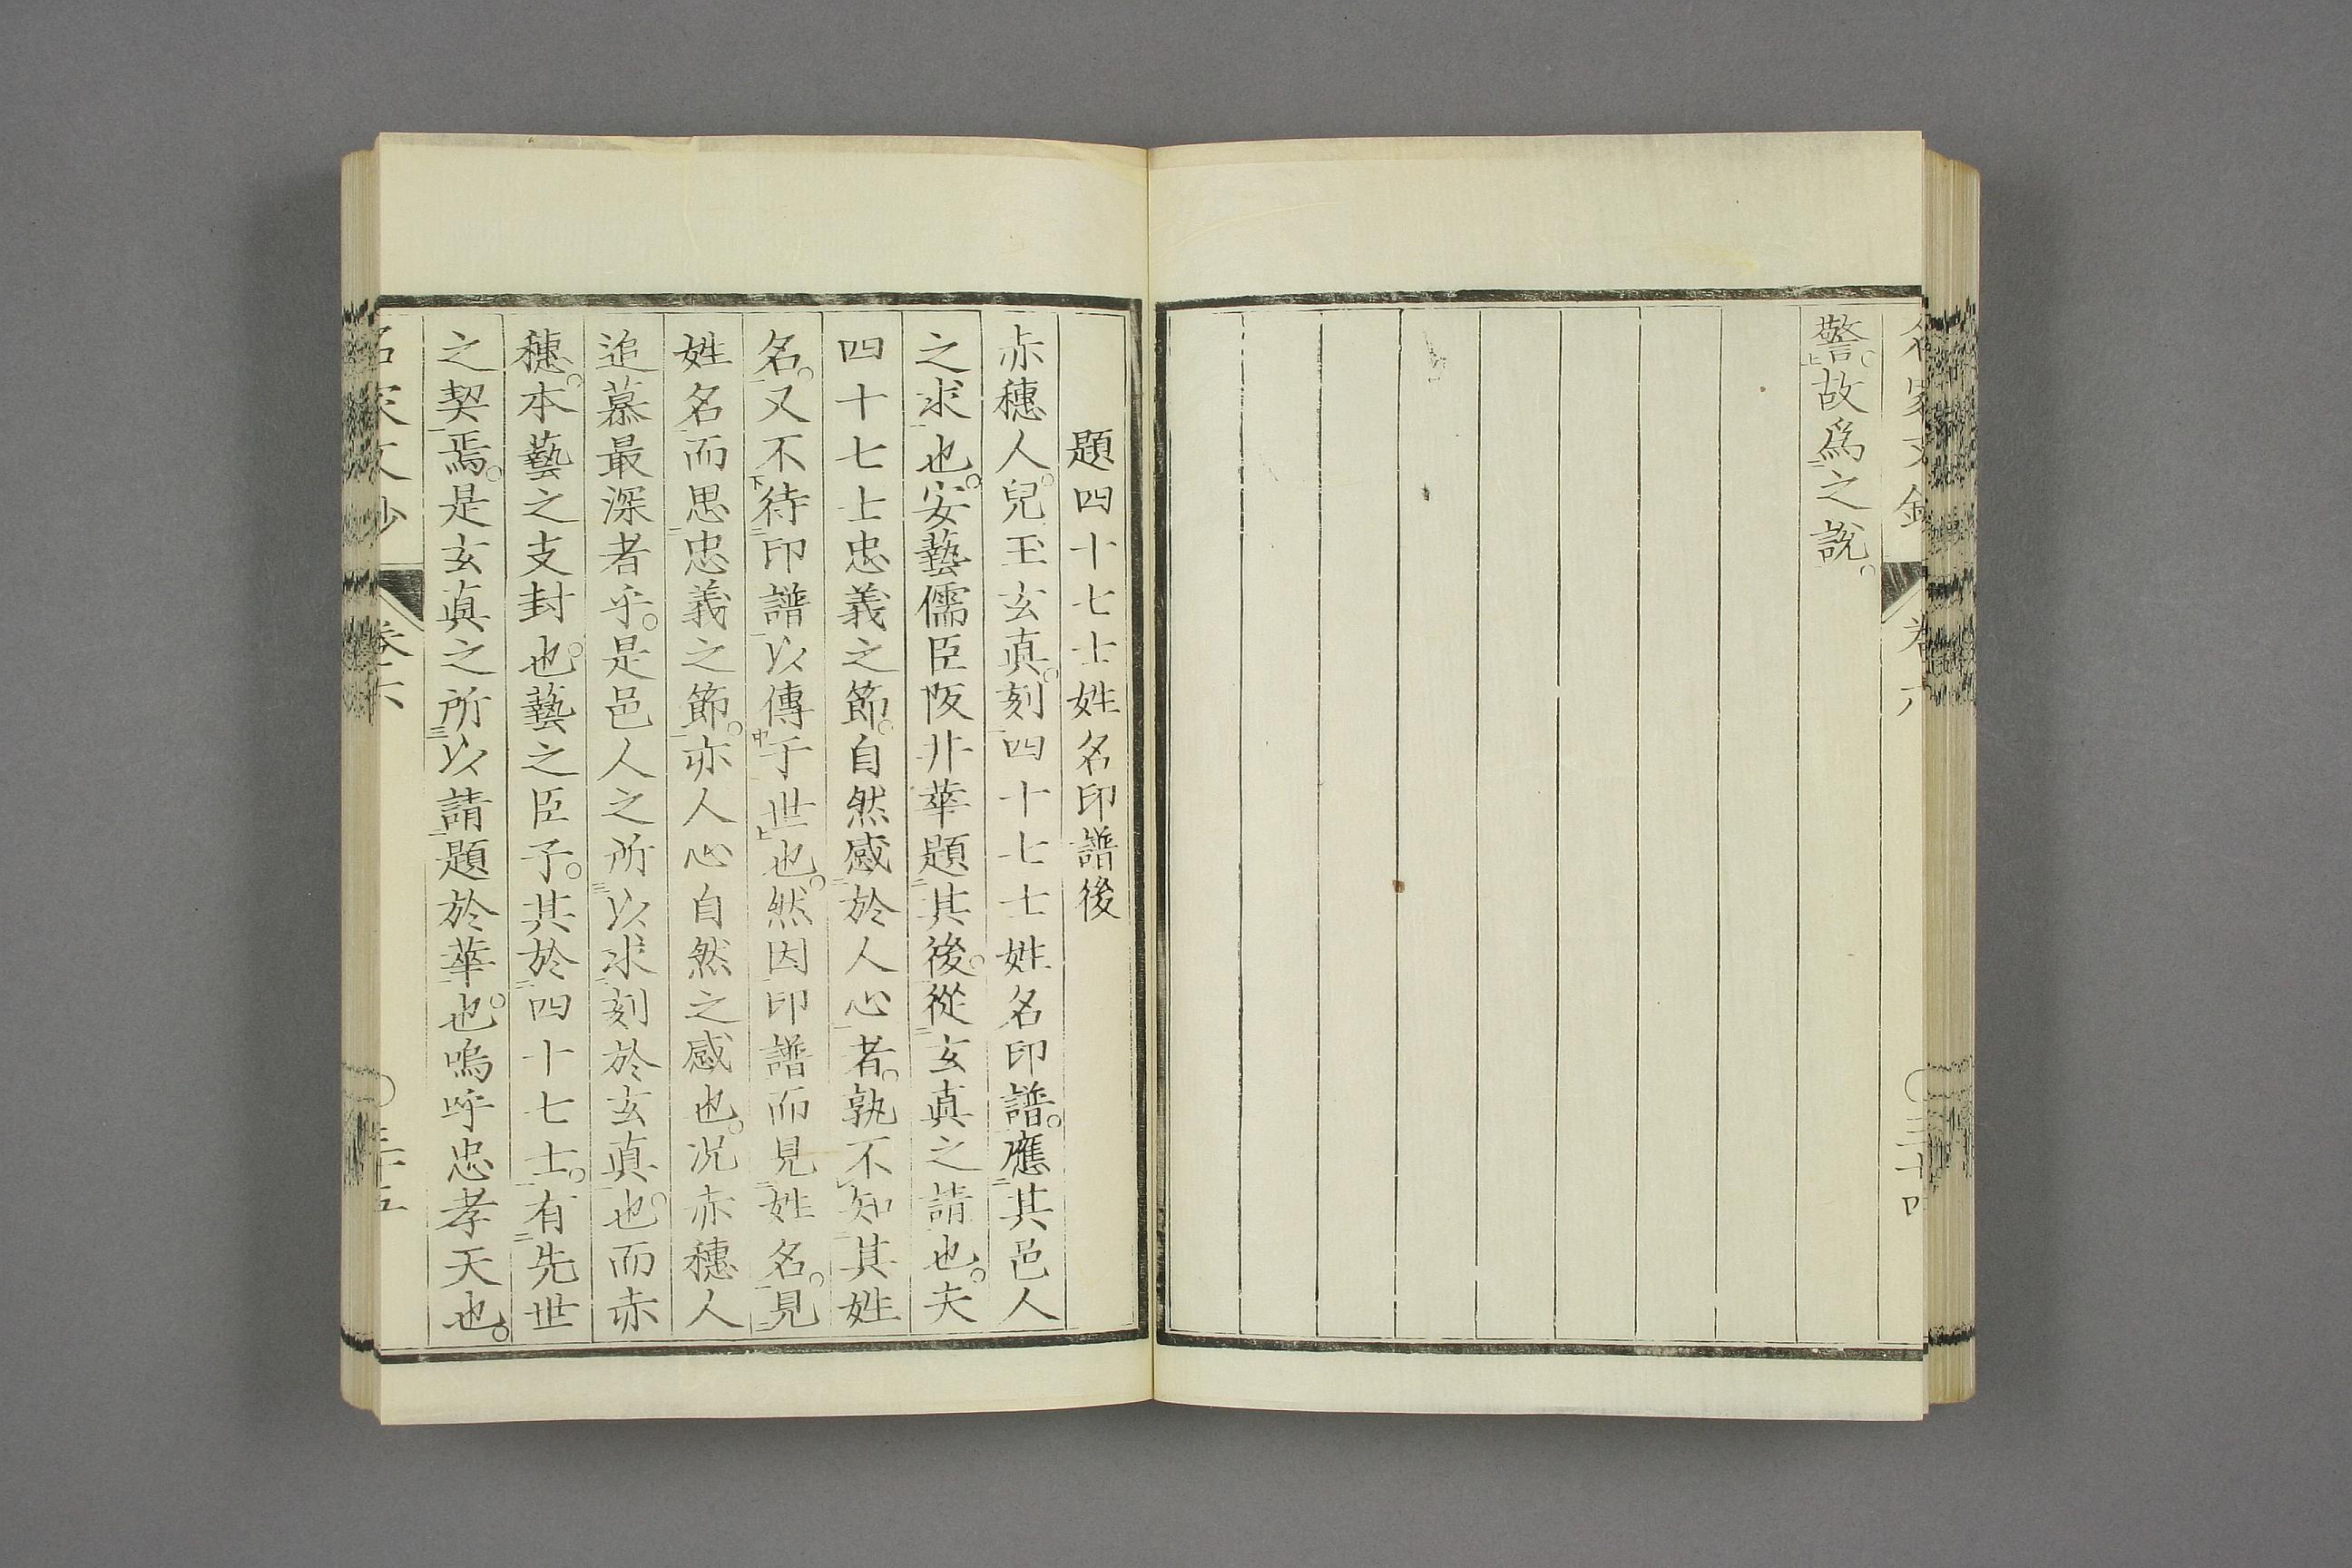 警。故爲之說。
題四十七士姓名印譜後
赤穗人。兒玉玄眞。刻四十七士姓名印譜。應其邑人
之求也。安藝儒臣阪井華題其後。從玄眞之請也。夫
四十七士忠義之節。自然感於人心者。孰不知其姓
名。又不待印譜以傳于世也。然因印譜而見姓名。見
姓名而思忠義之節。亦人心自然之感也。況赤穗人
追慕最深者乎。是邑人之所以求刻於玄眞也。而赤
穗。本藝之支封也。藝之臣子。其於四十七士。有先世
之契焉。是玄眞之所以請題於華也。嗚呼忠孝天也。
名家文鈔
卷六
三十五